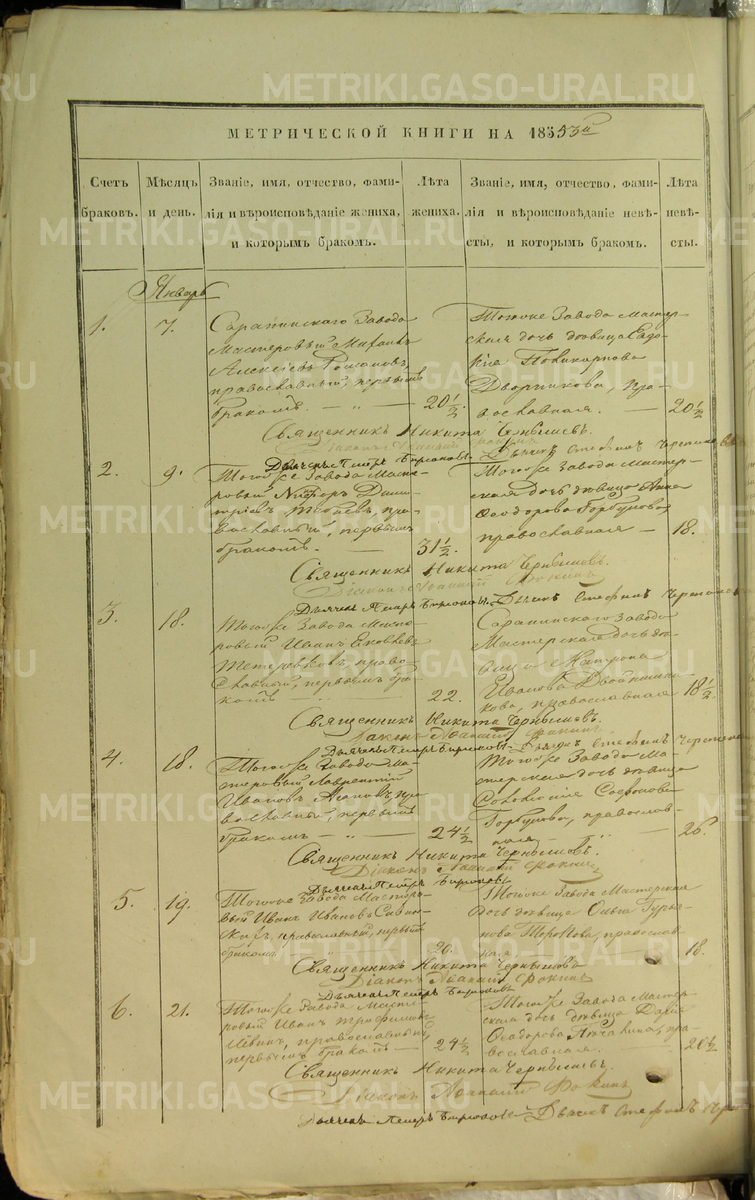 МЕТРИЧЕСКОЙ КНИГИ НА 1853й
Счетъ браковъ.
Мѣсяцъ и день.
Званіе, имя, отчество, фами-
лія и вѣроисповѣданіе жениха,
и которымъ бракомъ.
Лѣта жениха.
Званіе, имя, отчество, фами-
лія и вѣроисповѣданіе невѣ-
сты, и которымъ бракомъ.
Лѣта невѣ-
сты.
Январь
1.
7.
Сараинскаго Завода
Мастеровый
Алексѣевъ
православный, первымъ
бракомъ.
20½
Тогоже Завода Мастер-
ская дочь дѣвица Евдо-
кія Поликарпова
Дворникова, пра-
вославная.
20½
Священникъ Никита Чернышевъ.
Дьячекъ Петръ Бирюковъ
Дьячекъ Стефанъ
2.
9.
Тогоже Завода Масте-
ровый Никифоръ Дими-
тріевъ пра-
вославный, первымъ
бракомъ.
31½
Тогоже Завода мастер-
ская дочь дѣвица Анна
Ѳеодорова Горбунова
православная
18.
Священникъ Никита Чернышевъ.
Діаконъ Іоаннъ Фокинъ
Дьячекъ Петръ Бирюковъ. Дьячекъ Стефанъ
3.
18.
Тогоже Завода Масте-
ровый Иванъ Яковлевъ
Тетеревковъ, право-
славный, первымъ бра-
комъ
22.
Сараинскаго Завода
Мастерская дочь дѣ-
вица Матрона
Иванова Двойнико-
кова, православная
18½
Священникъ Никита Чернышевъ.
Діаконъ Іоаннъ Фокинъ
Дьячекъ Петръ Бирюковъ. Дьячекъ Стефанъ
4.
18.
Тогоже Завода Ма-
стеровый Лаврентій
Ивановъ пра-
вославный, первымъ
бракомъ
24½
Тогоже Завода Ма-
стерская дочь дѣвица
Соломонія
Горбунова, православ-
ная
26.
Священникъ Никита Чернышевъ.
Діаконъ Іоаннъ Фокинъ
Дьячекъ Петръ Бирюковъ
5.
19.
Тогоже Завода Мастеро-
вый Иванъ Ивановъ
православный, первымъ
бракомъ
20.
Тогоже Завода Мастерская
дочь дѣвица Ольга Гурья-
нова православ-
ная
18.
Священникъ Никита Чернышевъ
Діаконъ Іоаннъ Фокинъ
Дьячекъ Петръ Бирюковъ
6.
21.
Тогоже Завода Масте-
ровый Иванъ Трофимовъ
православный,
первымъ бракомъ
24½
Тогоже Завода Мастер-
ская дочь дѣвица Дарья
Ѳеодорова пра-
вославная.
20½
Священникъ Никита Чернышевъ.
Діаконъ Іоаннъ Фокинъ
Дьячекъ Петръ Бирюковъ Дьячекъ Стефанъ
METRIKI.GASO-URAL.RU